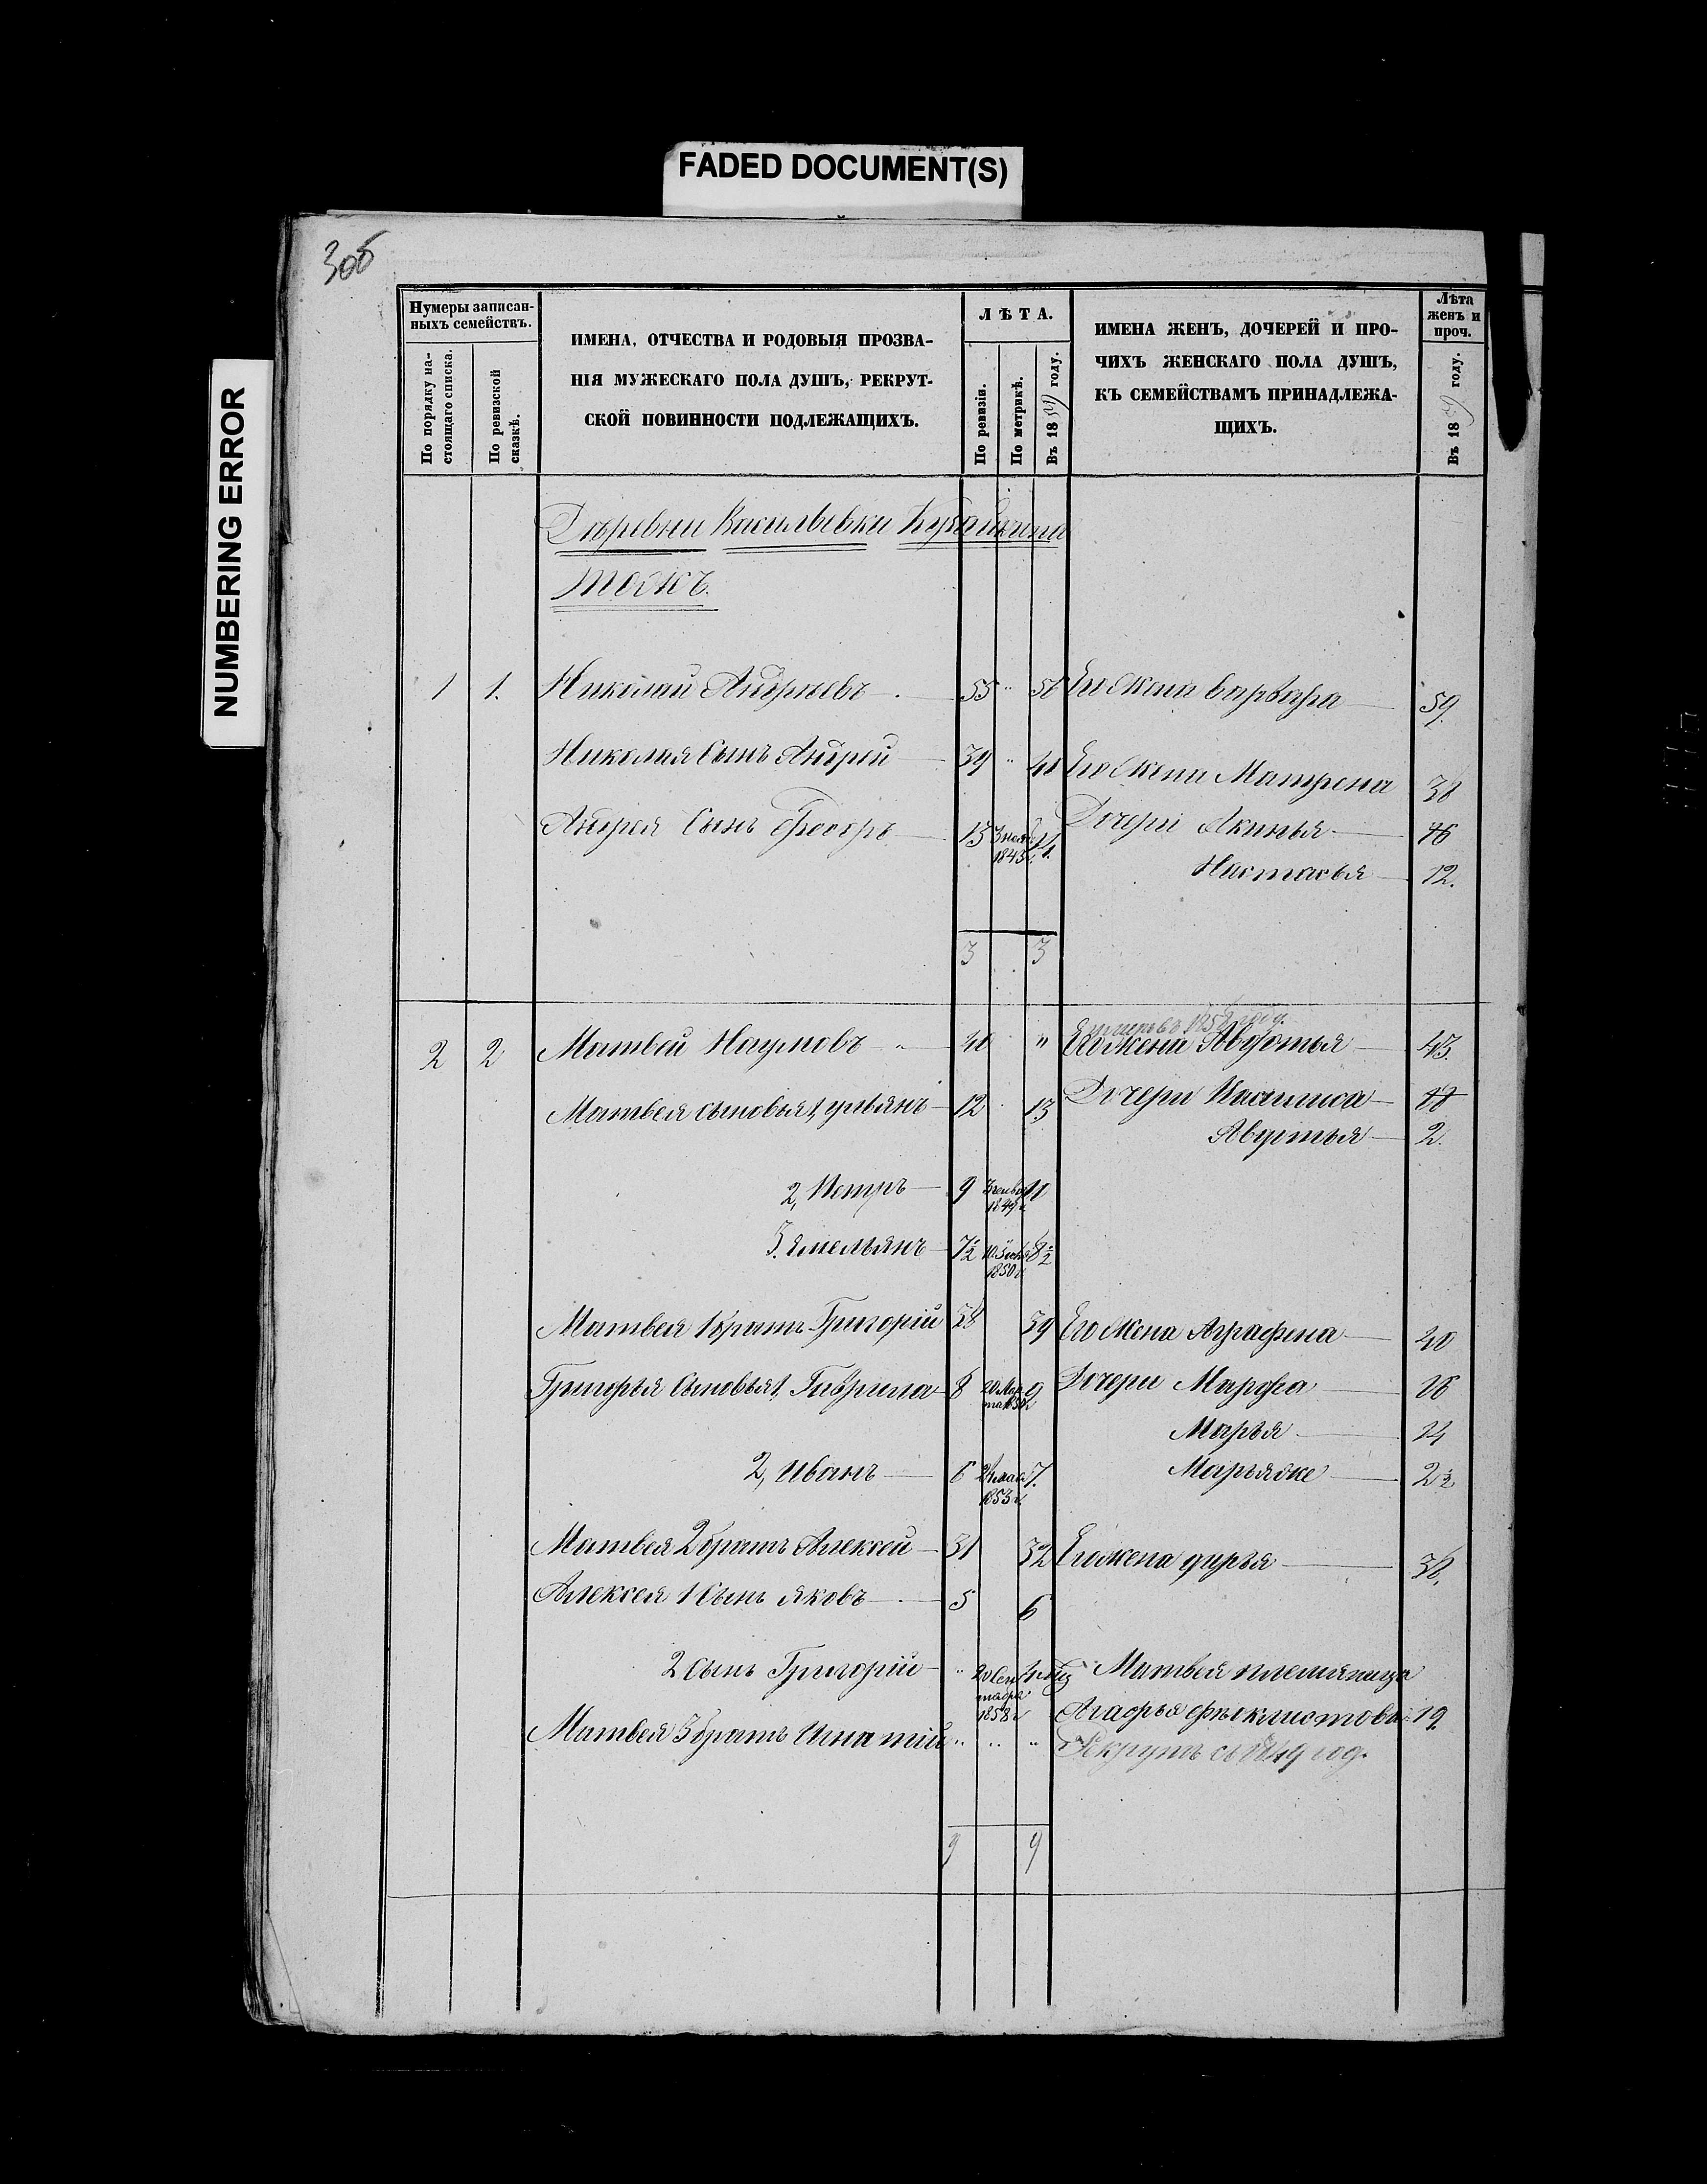 FADED DOCUMENT(S)
NUMBERING ERROR
306
Нумеры записан-
ныхъ семействъ.
По порядку на-
стоящаго списка.
По ревизской
сказкѣ.
ИМЕНА, ОТЧЕСТВА И РОДОВЫЯ ПРОЗВА-
НІЯ МУЖЕСКАГО ПОЛА ДУШЪ, РЕКРУТ-
СКОЙ ПОВИННОСТИ ПОДЛЕЖАЩИХЪ.
ЛѢТА.
По ревизіи.
По метрикѣ.
Въ 1859 году.
ИМЕНА ЖЕНЪ, ДОЧЕРЕЙ И ПРО-
ЧИХЪ ЖЕНСКАГО ПОЛА ДУШЪ,
КЪ СЕМЕЙСТВАМЪ ПРИНАДЛЕЖА-
ЩИХЪ.
Лѣта
женъ и
проч.
Въ 1859 году.
Деревни Васильевки
тожъ.
1 1. Николай Андреевъ 55 " 56 Его жена варвара 59
Николая Сынъ Андрей 39 " 40 Его жена Матрена 38
Андрея Сынъ Федоръ 13 14. Дочери Акинья 16
1845
Настасья 12.
3 3
1858 год.
2 2 Матвей Наумовъ 40 " Его жена Авдотья 43.
Матвея сыновья 1, ульянъ 12 13 Дочери 18
Авдотья 2.
2, Петръ 9 11
1849
3. Емельянъ 7½ 10 8½
1850 г.
Матвея 1 братъ Григорій 38 39 Его жена Аграфена 40
Григорья Сыновья 1. Гаврила 8 20 Мар 9 Дочери Марфа 16
та 1850
Марья 14
2, Иванъ 6 24 мая 7. 2½
1853 г.
Матвея 2 братъ Алексей 31 32 Его жена дарья 38.
Алексея 1 Сынъ яковъ 5 6
2 Сынъ Григорій " 20 Сен Матвея племяница
тября
1858 г. Агафья феклистова 19
Матвея 3 братъ Игнатій " " " Рекрутъ 1849 год.
9 9